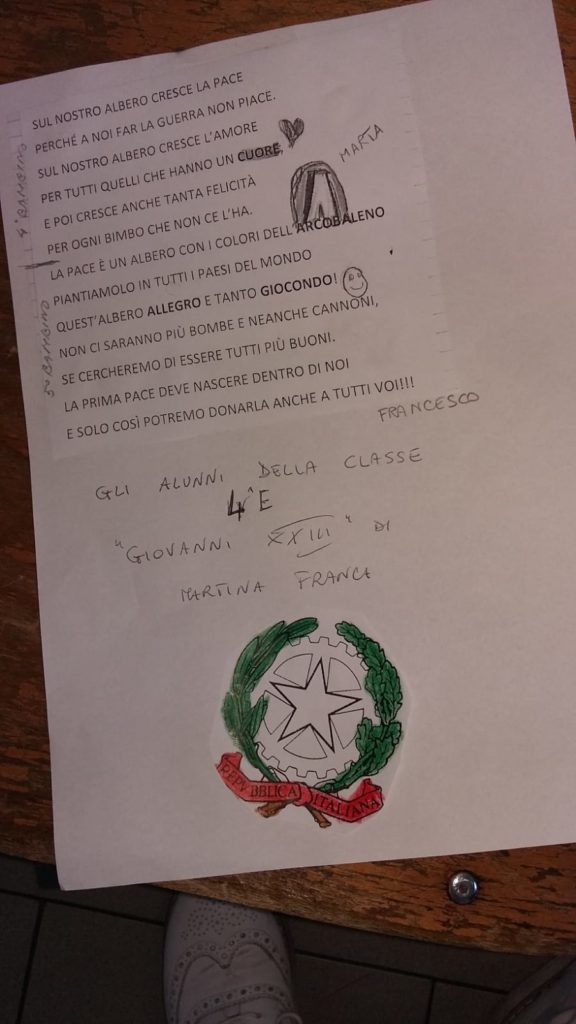 SUL NOSTRO ALBERO CRESCE LA PACE
PERCHÉ A NOI FAR LA GUERRA NON PIACE.
SUL NOSTRO ALBERO CRESCE L'AMORE
PER TUTTI QUELLI CHE HANNO UN CUORE,
E POI CRESCE ANCHE TANTA FELICITÀ
PER OGNI BIMBO CHE NON CE L'HA.
4° BAMBINO
MARTA
LA PACE È UN ALBERO CON I COLORI DELL'ARCOBALENO
PIANTIAMOLO IN TUTTI I PAESI DEL MONDO
QUEST'ALBERO ALLEGRO E TANTO GIOCONDO!
NON CI SARANNO PIÙ BOMBE E NEANCHE CANNONI,
SE CERCHEREMO DI ESSERE TUTTI PIÙ BUONI.
LA PRIMA PACE DEVE NASCERE DENTRO DI NOI
E SOLO COSÌ POTREMO DONARLA ANCHE A TUTTI VOI!!!
5° BAMBINO
FRANCESCO
GLI ALUNNI DELLA CLASSE
4^E
"GIOVANNI XXIII" DI
MARTINA FRANCA
REPVBBLICA ITALIANA